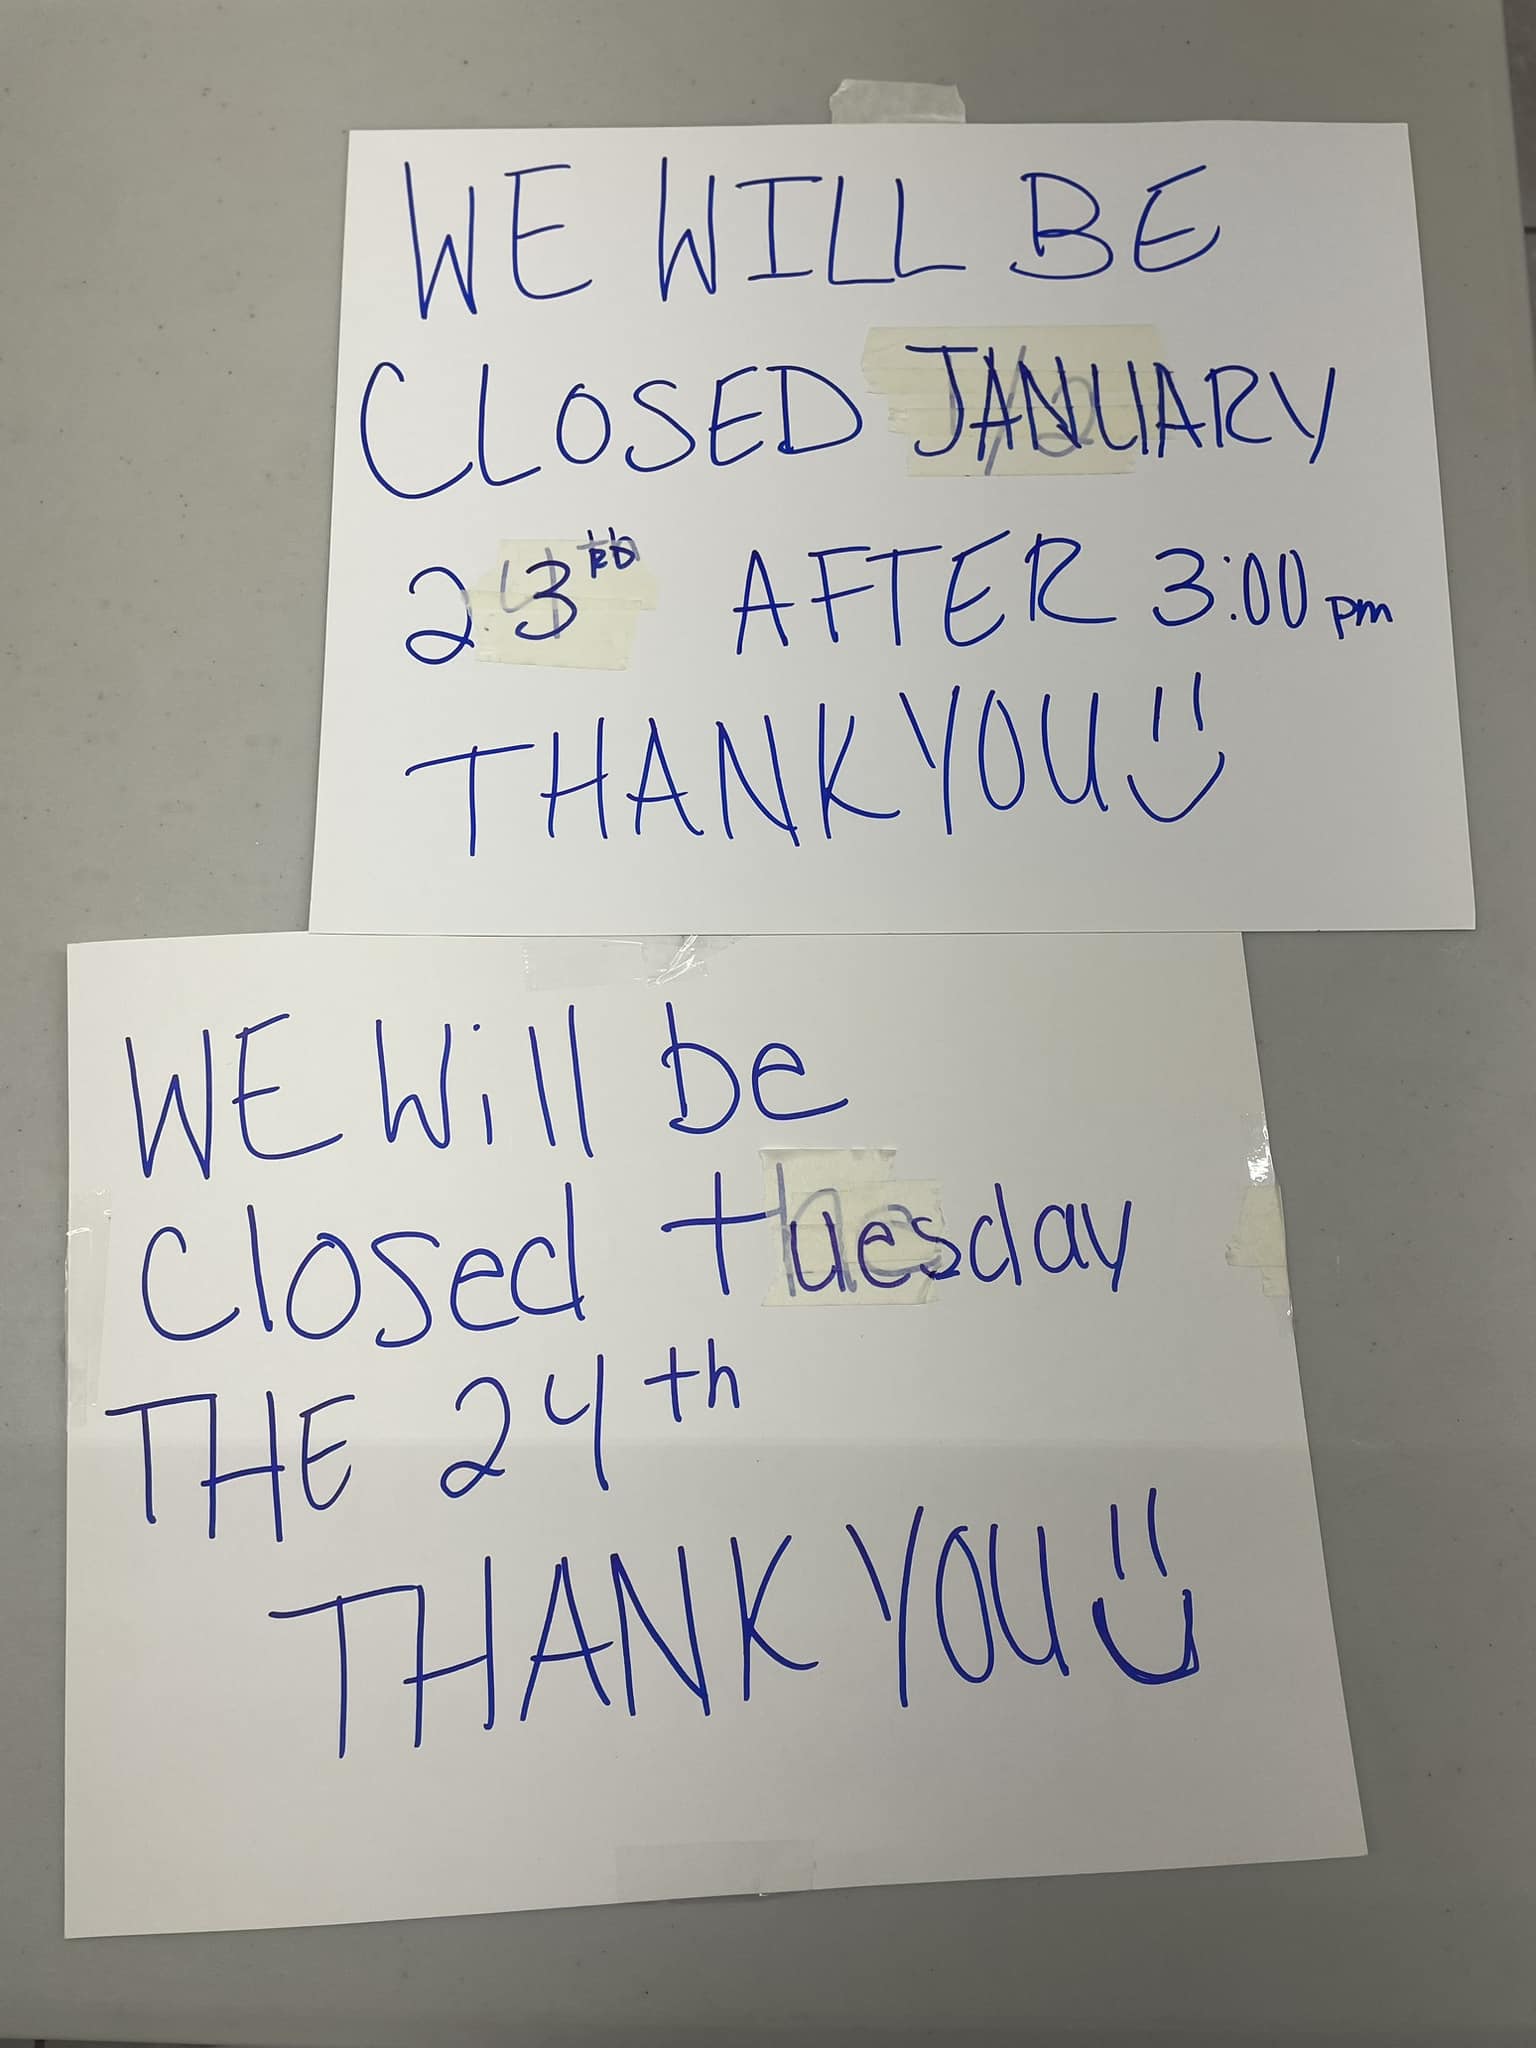 WE WILL BE
CLOSED JANUARY
23RD AFTER 3:00 pm
THANK YOU
WE Will be
Closed tuesday
THE 24th
THANK YOU